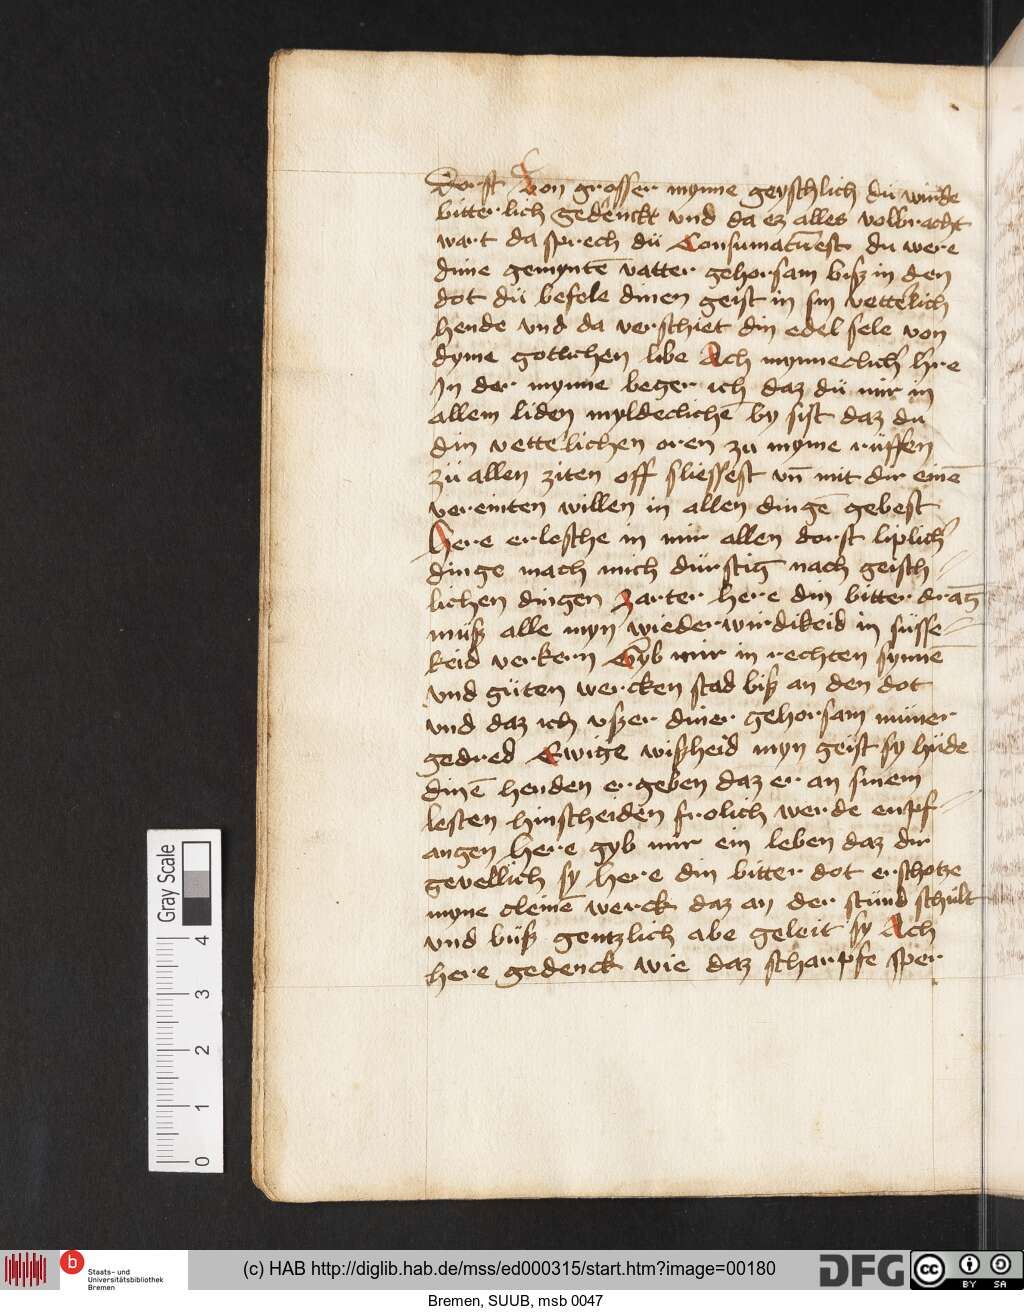 dorst Von grosser mynne geyschlich dü würde
bitterlich gedenckt vnd da ez alles volbracht
wart da sprech dü Consumatū est du were
dine gemyntē vatter gehorsam bisz in den
dot dü befele dinen geist in sin vetterlich
hende vnd da verschiet din edel sele von
dyme gotlichen libe Ach mynneclich' h're
In der mynne beger ich daz dü mir in
allem liden myldeclichē by sist daz du
din vetterlichen oren zu myme rüffen
zü allen ziten off sliessest vn̄ mit dir einē
vereinten willen in allen dingē gebest
Here erlesche in mir allen dorst liplich'
dinge mach mich dürstig nach geisch-
lichen dingen Zarter here din bitter drag
müsz alle myn wiederwirdikeid in süsse-
keid verkern Gyb mir in rechten synnē
vnd güten wercken stad bisz an den dot
vnd daz ich vszer diner gehorsam nümer
gedred Ewige wiszheid myn geist sy hüde
dinē henden ergeben daz er an sinem
lesten hinscheiden frolich werde enpf-
angen here gyb mir ein leben daz dir
gevellich sy here din bitter dot erschotze
myne cleinē werck daz an der stünd schült
vnd büsz gentzlich abe geleit sy Ach
here gedenck wie daz scharpfe sper
Gray Scale
4
3
2
1
0
b
Staats- und
Universitätsbibliothek
Bremen
(c) HAB http://diglib.hab.de/mss/ed000315/start.htm?image=00180
DFG
cc
BY SA
Bremen, SUUB, msb 0047